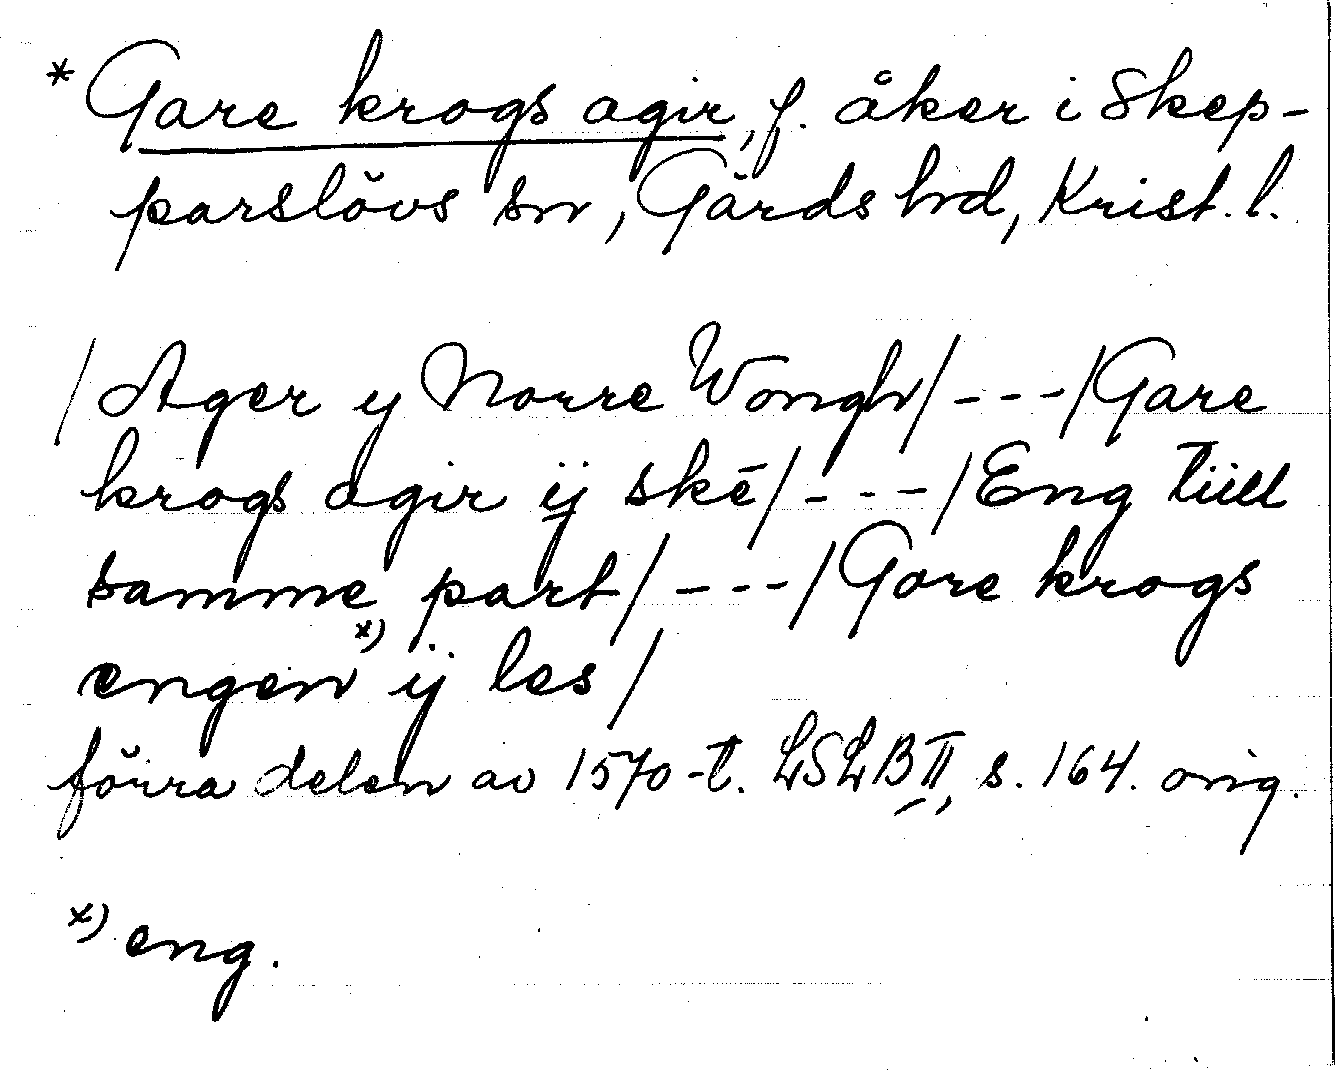 * Gare krogs agir, f. åker i Skep-
parslövs sn, Gärds hd, Krist. l.
/Ager y Norre Wongh/---/Gare
krogs agir ÿ skē/---/Eng tüll
samme part/---/Gore krogs
engen x) ÿ les/
förra delen av 1570-t. LSLB II, s. 164. orig.
x) eng.